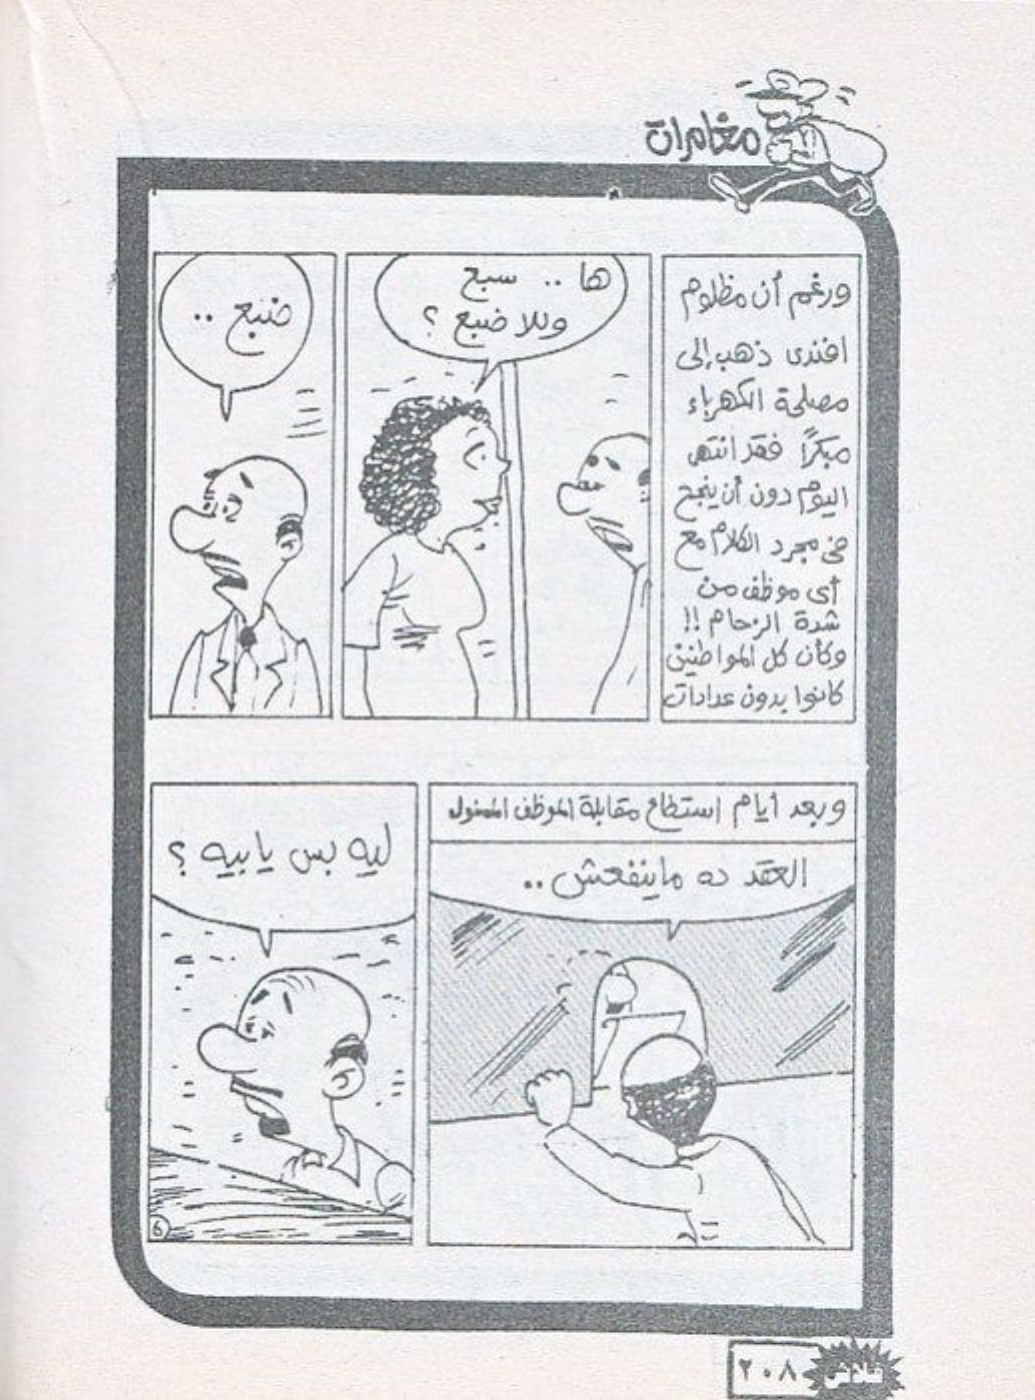 مغامرات
ورغم أن مظلوم
افندى ذهب إلى
مصلحة الكهرباء
مبكرًا فقد انتهى
اليوم دون أن ينجح
فى مجرد الكلام مع
أى موظف من
شدة الزحام !!
وكأن كل المواطنين
كانوا بدون عدادات
ها .. سبع
وللا ضبع ؟
ضبع ..
وبعد أيام استطاع مقابلة الموظف المسئول
العقد ده ماينفعش ..
ليه بس يا بيه ؟
6
فلاش
٢٠٨